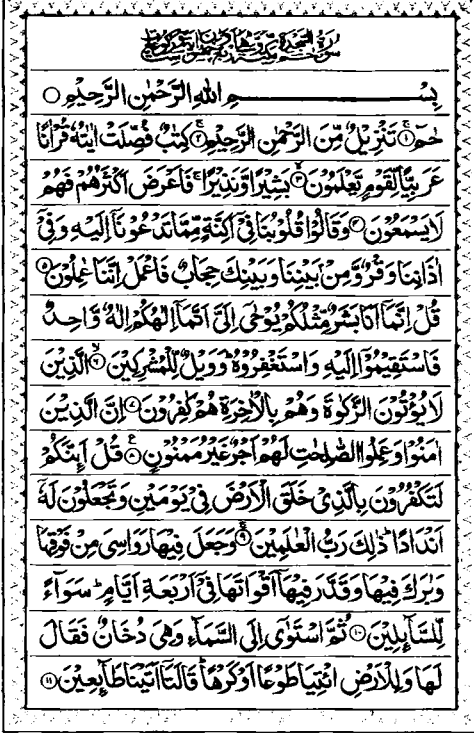 بِسْمِ اللهِ الرَّحْمٰنِ الرَّحِيْمِ ○
حٰمٓ ۚ﴿۱﴾ تَنْزِيْلٌ مِّنَ الرَّحْمٰنِ الرَّحِيْمِ ۚ﴿۲﴾ كِتٰبٌ فُصِّلَتْ اٰيٰتُهٗ قُرْاٰنًا
عَرَبِيًّا لِّقَوْمٍ يَّعْلَمُوْنَ ۙ﴿۳﴾ بَشِيْرًا وَّنَذِيْرًا ۚ فَاَعْرَضَ اَكْثَرُهُمْ فَهُمْ
لَا يَسْمَعُوْنَ ﴿۴﴾ وَقَالُوْا قُلُوْبُنَا فِيْٓ اَكِنَّةٍ مِّمَّا تَدْعُوْنَآ اِلَيْهِ وَفِيْٓ
اٰذَانِنَا وَقْرٌ وَّمِنْۢ بَيْنِنَا وَبَيْنِكَ حِجَابٌ فَاعْمَلْ اِنَّنَا عٰمِلُوْنَ ﴿۵﴾
قُلْ اِنَّمَآ اَنَا بَشَرٌ مِّثْلُكُمْ يُوْحٰٓى اِلَيَّ اَنَّمَآ اِلٰهُكُمْ اِلٰهٌ وَّاحِدٌ
فَاسْتَقِيْمُوْٓا اِلَيْهِ وَاسْتَغْفِرُوْهُ ؕ وَوَيْلٌ لِّلْمُشْرِكِيْنَ ۙ﴿۶﴾ الَّذِيْنَ
لَا يُؤْتُوْنَ الزَّكٰوةَ وَهُمْ بِالْاٰخِرَةِ هُمْ كٰفِرُوْنَ ﴿۷﴾ اِنَّ الَّذِيْنَ
اٰمَنُوْا وَعَمِلُوا الصّٰلِحٰتِ لَهُمْ اَجْرٌ غَيْرُ مَمْنُوْنٍ ﴿۸﴾ قُلْ اَئِنَّكُمْ
لَتَكْفُرُوْنَ بِالَّذِيْ خَلَقَ الْاَرْضَ فِيْ يَوْمَيْنِ وَتَجْعَلُوْنَ لَهٗٓ
اَنْدَادًا ؕ ذٰلِكَ رَبُّ الْعٰلَمِيْنَ ۚ﴿۹﴾ وَجَعَلَ فِيْهَا رَوَاسِيَ مِنْ فَوْقِهَا
وَبٰرَكَ فِيْهَا وَقَدَّرَ فِيْهَآ اَقْوَاتَهَا فِيْٓ اَرْبَعَةِ اَيَّامٍ ؕ سَوَآءً
لِّلسَّآئِلِيْنَ ﴿۱۰﴾ ثُمَّ اسْتَوٰٓى اِلَى السَّمَآءِ وَهِيَ دُخَانٌ فَقَالَ
لَهَا وَلِلْاَرْضِ ائْتِيَا طَوْعًا اَوْ كَرْهًا ؕ قَالَتَآ اَتَيْنَا طَآئِعِيْنَ ﴿۱۱﴾